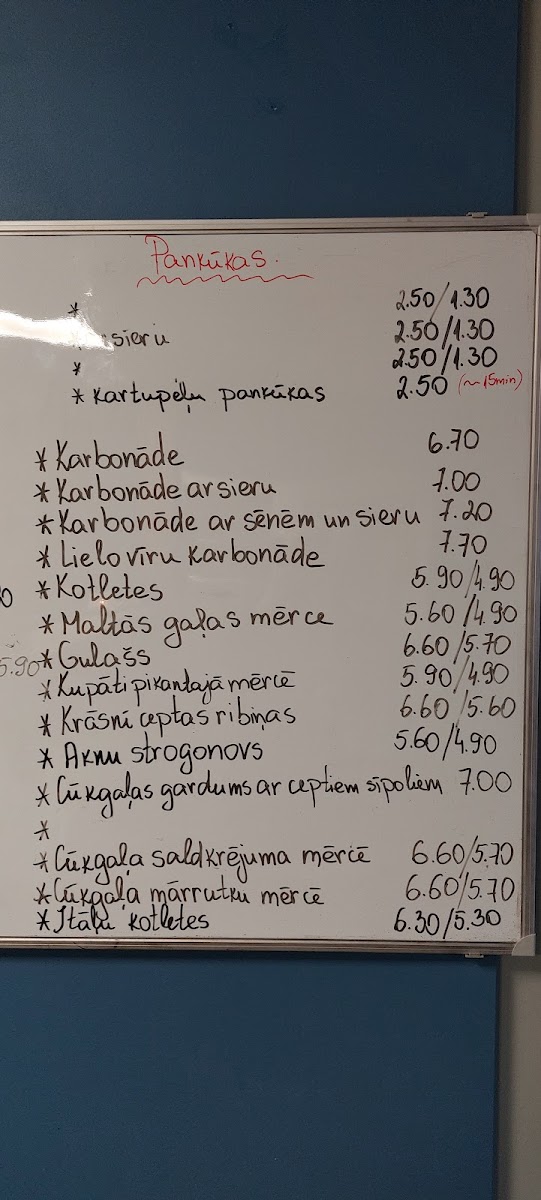 Pankūkas.
* 2.50/1.30
sieru 2.50/1.30
* 2.50/1.30
* Kartupeļu pankūkas 2.50 (~15min)
* Karbonāde 6.70
* Karbonāde ar sieru 7.00
* Karbonāde ar sēnēm un sieru 7.20
* Lielo vīru karbonāde 7.70
* Kotletes 5.90/4.90
* Maltās gaļas mērce 5.60/4.90
5.90 * Gulašs 6.60/5.70
* Kupāti pikantajā mērcē 5.90/4.90
* Krāsnī ceptas ribiņas 6.60/5.60
* Aknu strogonovs 5.60/4.90
* Cūkgaļas gardums ar ceptiem sīpoliem 7.00
*
* Cūkgaļa saldkrējuma mērcē 6.60/5.70
* Cūkgaļa mārrutku mērcē 6.60/5.70
* Itāļu kotletes 6.30/5.30